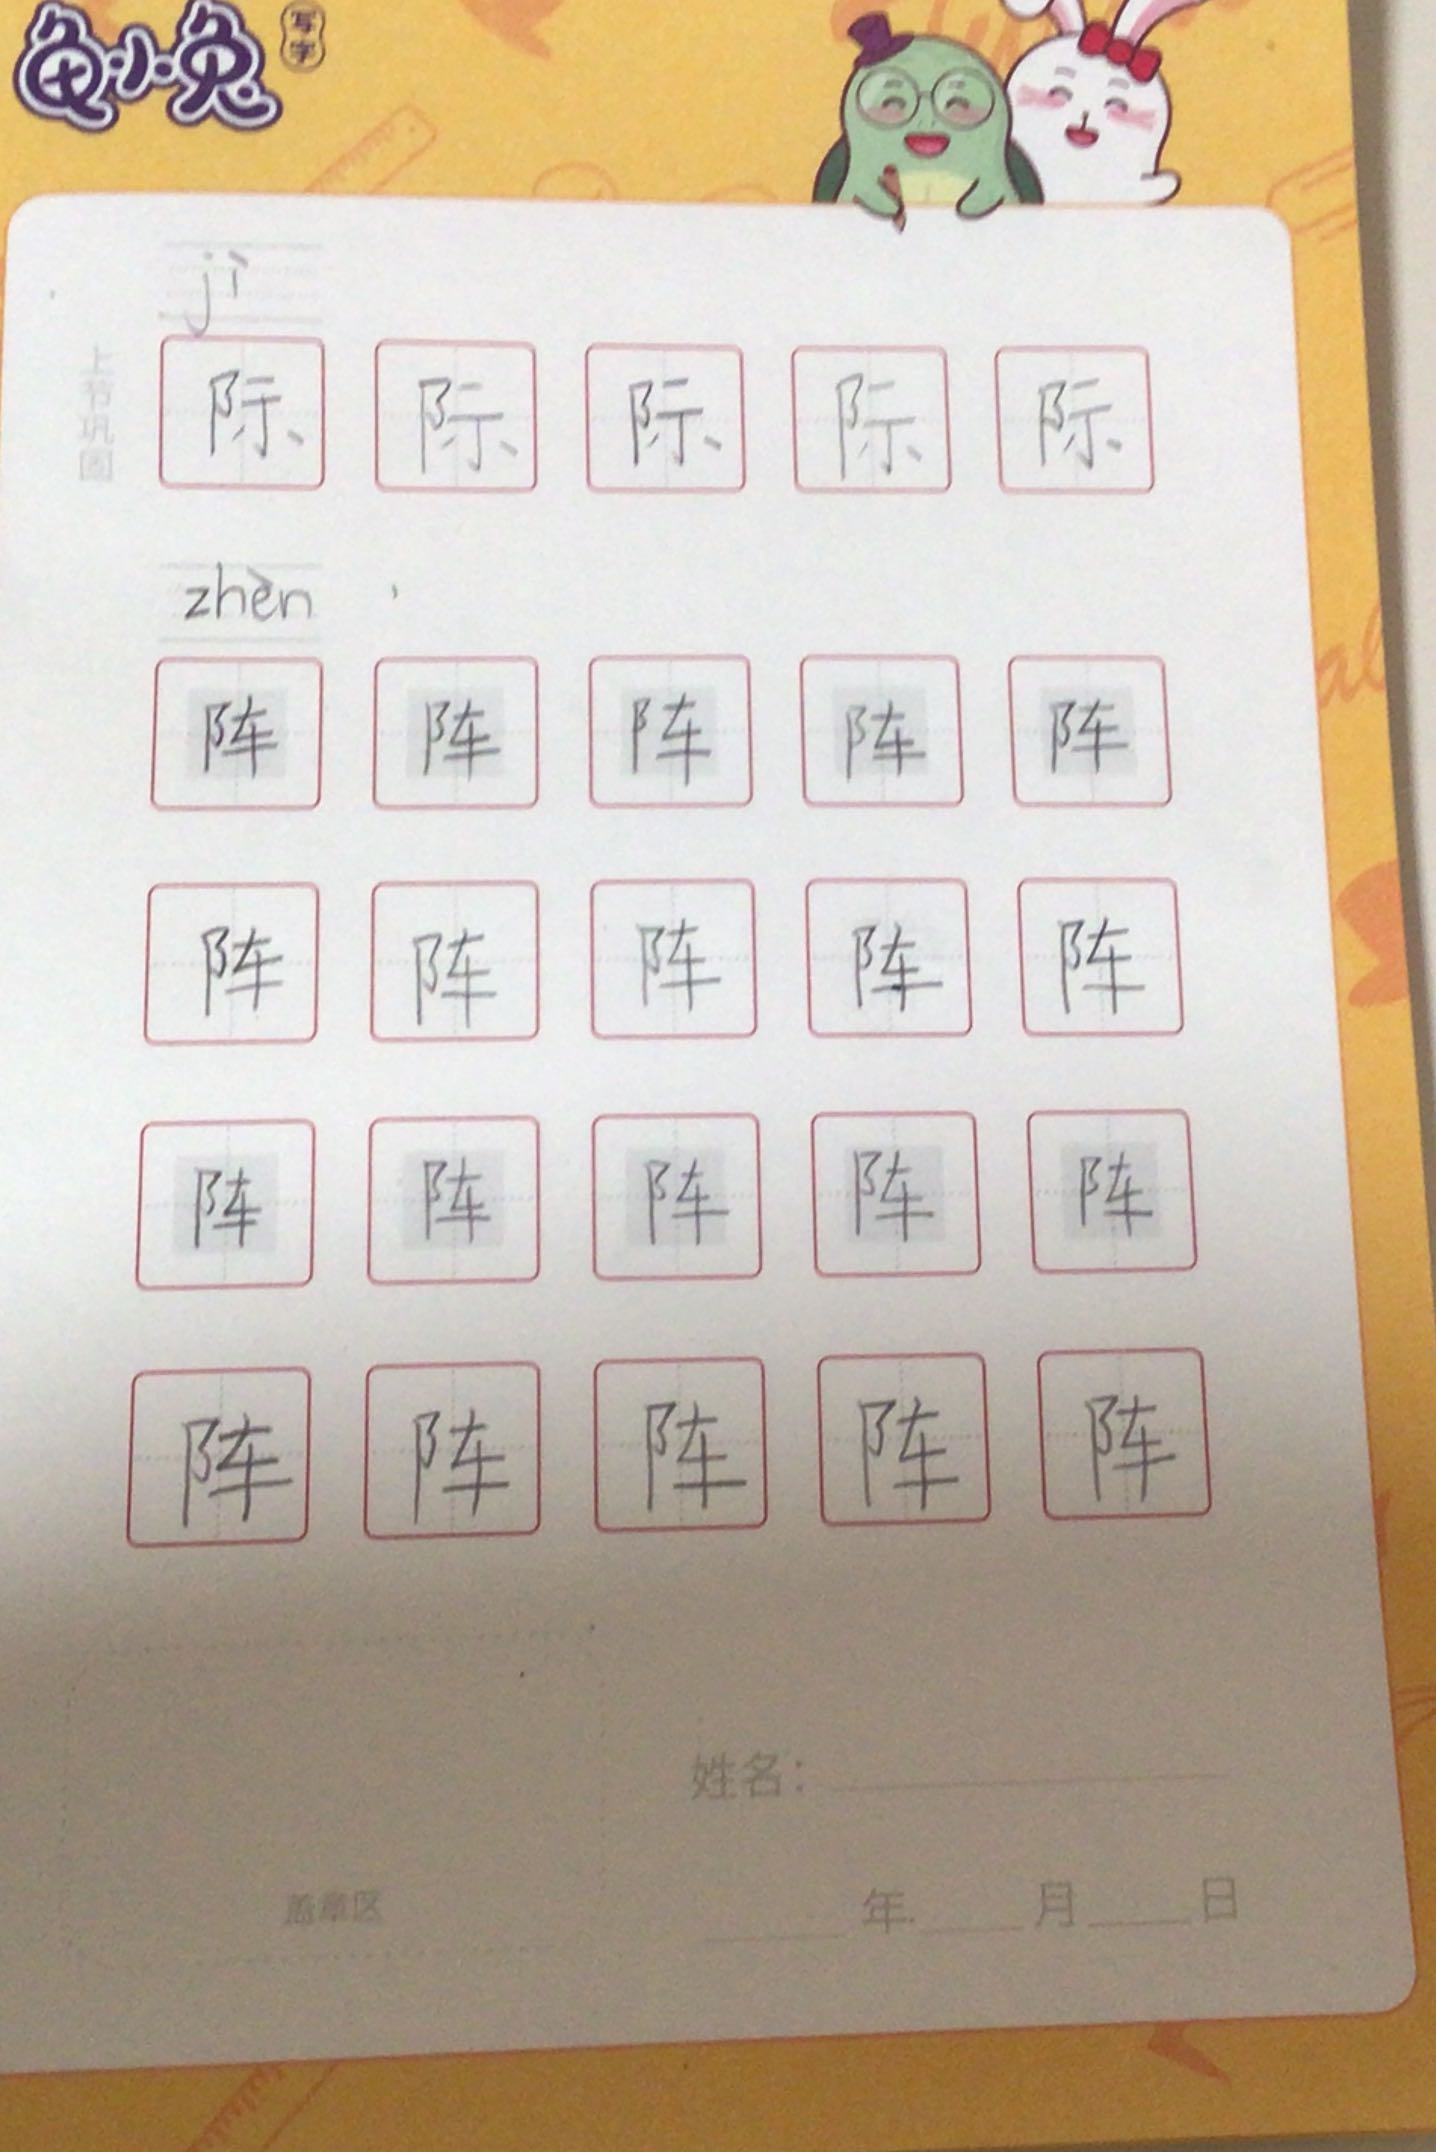 龟小兔 写字
jì
上节巩固
际 际 际 际 际
zhèn
阵 阵 阵 阵 阵
阵 阵 阵 阵 阵
阵 阵 阵 阵 阵
阵 阵 阵 阵 阵
姓名：
盖章区
年 月 日